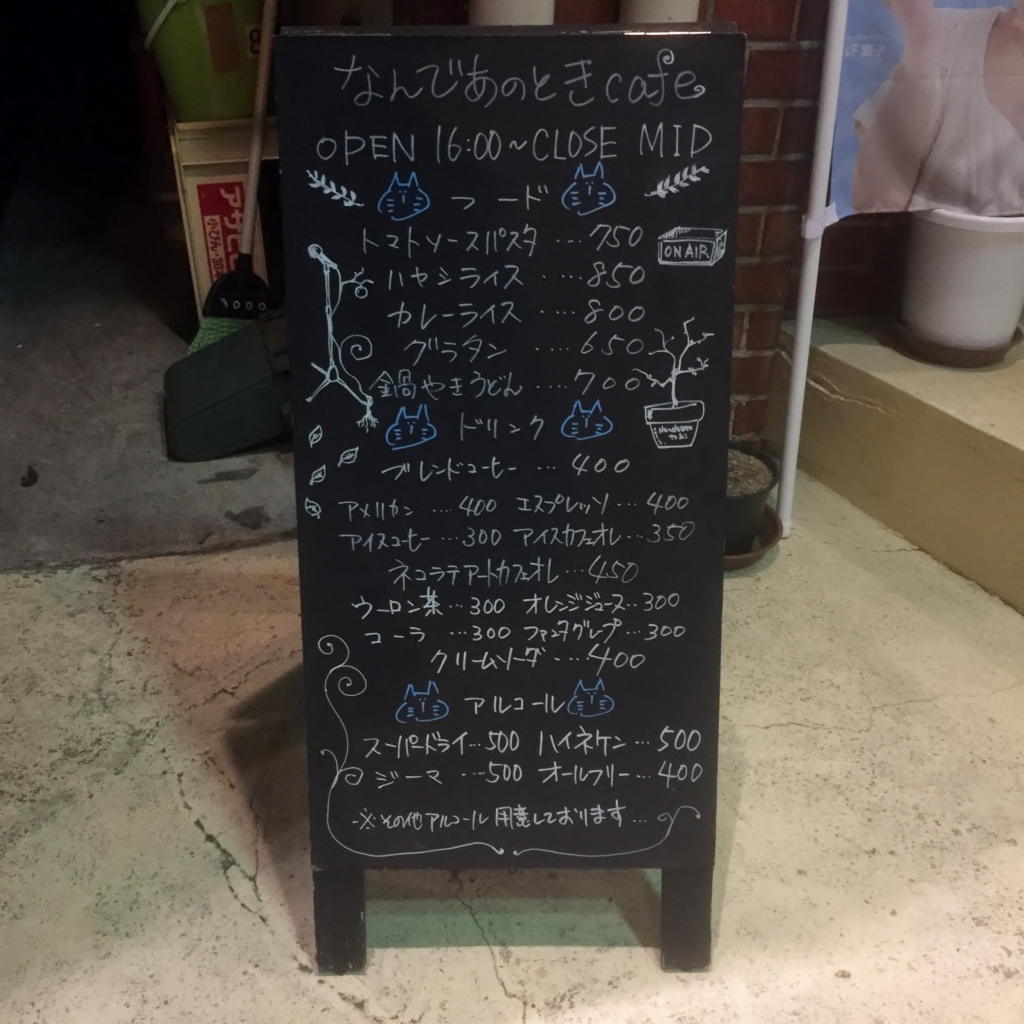 なんであのときcafe
OPEN 16:00~CLOSE MID
フード
トマトソースパスタ ....750
ON AIR
ハヤシライス .....850
カレーライス ....800
グラタン .....650
鍋やきうどん ....700
Nandeano
toki
ドリンク
ブレンドコーヒー ...400
アメリカン ....400 エスプレッソ...400
アイスコーヒー ...300 アイスカフェオレ...350
ネコラテアートカフェオレ...450
ウーロン茶...300 オレンジジュース...300
コーラ ...300 ファンタグレープ...300
クリームソーダ....400
アルコール
スーパードライ...500 ハイネケン...500
ジーマ ...500 オールフリー...400
※その他アルコール用意しております...
アサヒ